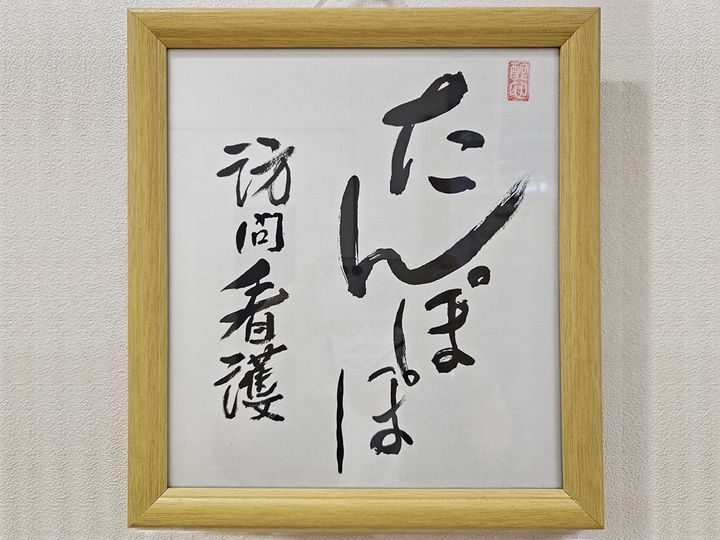 たんぽぽ
訪問看護